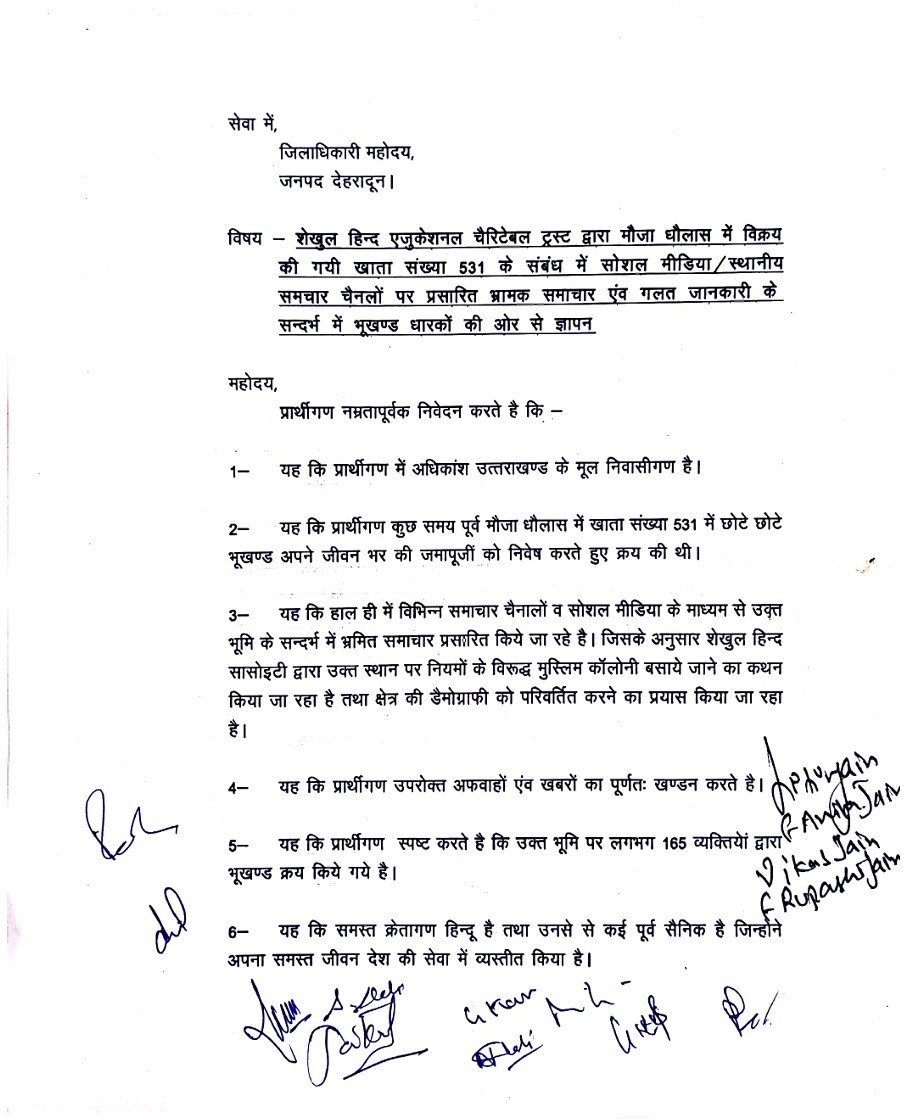 सेवा में,
जिलाधिकारी महोदय,
जनपद देहरादून।
विषय – शेखुल हिन्द एजुकेशनल चैरिटेबल ट्रस्ट द्वारा मौजा धौलास में विक्रय
की गयी खाता संख्या 531 के संबंध में सोशल मीडिया/स्थानीय
समचार चैनलों पर प्रसारित भ्रामक समाचार एंव गलत जानकारी के
सन्दर्भ में भूखण्ड धारकों की ओर से ज्ञापन
महोदय,
प्रार्थीगण नम्रतापूर्वक निवेदन करते है कि –
1– यह कि प्रार्थीगण में अधिकांश उत्तराखण्ड के मूल निवासीगण है।
2– यह कि प्रार्थीगण कुछ समय पूर्व मौजा धौलास में खाता संख्या 531 में छोटे छोटे
भूखण्ड अपने जीवन भर की जमापूजीं को निवेष करते हुए क्रय की थी।
3– यह कि हाल ही में विभिन्न समाचार चैनालों व सोशल मीडिया के माध्यम से उक्त
भूमि के सन्दर्भ में भ्रमित समाचार प्रसारित किये जा रहे है। जिसके अनुसार शेखुल हिन्द
सासोइटी द्वारा उक्त स्थान पर नियमों के विरूद्ध मुस्लिम कॉलोनी बसाये जाने का कथन
किया जा रहा है तथा क्षेत्र की डैमोग्राफी को परिवर्तित करने का प्रयास किया जा रहा
है।
4– यह कि प्रार्थीगण उपरोक्त अफवाहों एंव खबरों का पूर्णतः खण्डन करते है।
5– यह कि प्रार्थीगण स्पष्ट करते है कि उक्त भूमि पर लगभग 165 व्यक्तियों द्वारा
भूखण्ड क्रय किये गये है।
Vikas Jain
6– यह कि समस्त क्रेतागण हिन्दू है तथा उनसे से कई पूर्व सैनिक है जिन्होंने
अपना समस्त जीवन देश की सेवा में व्यस्तीत किया है।